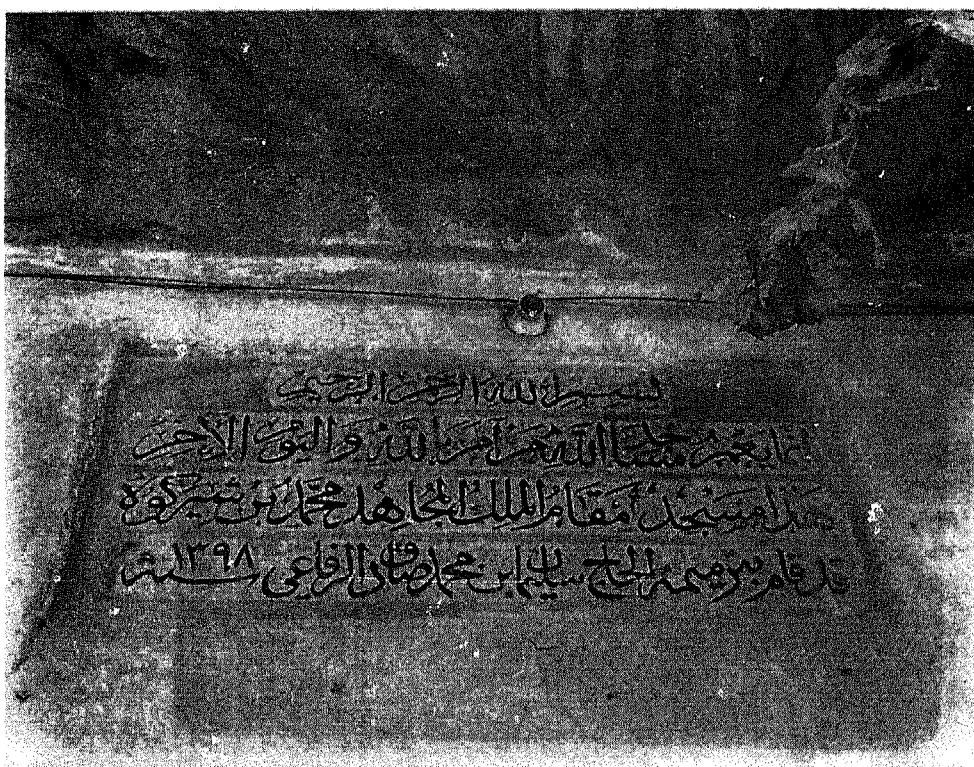 بسم الله الرحمن الرحيم
انما يعمر مساجد الله من آمن بالله واليوم الآخر
هذا مسجد ومقام الملك المجاهد محمد بن شيركوه
قد قام بترميمه الحاج سليمان بن محمد صادق الرفاعي سنة ١٣٩٨